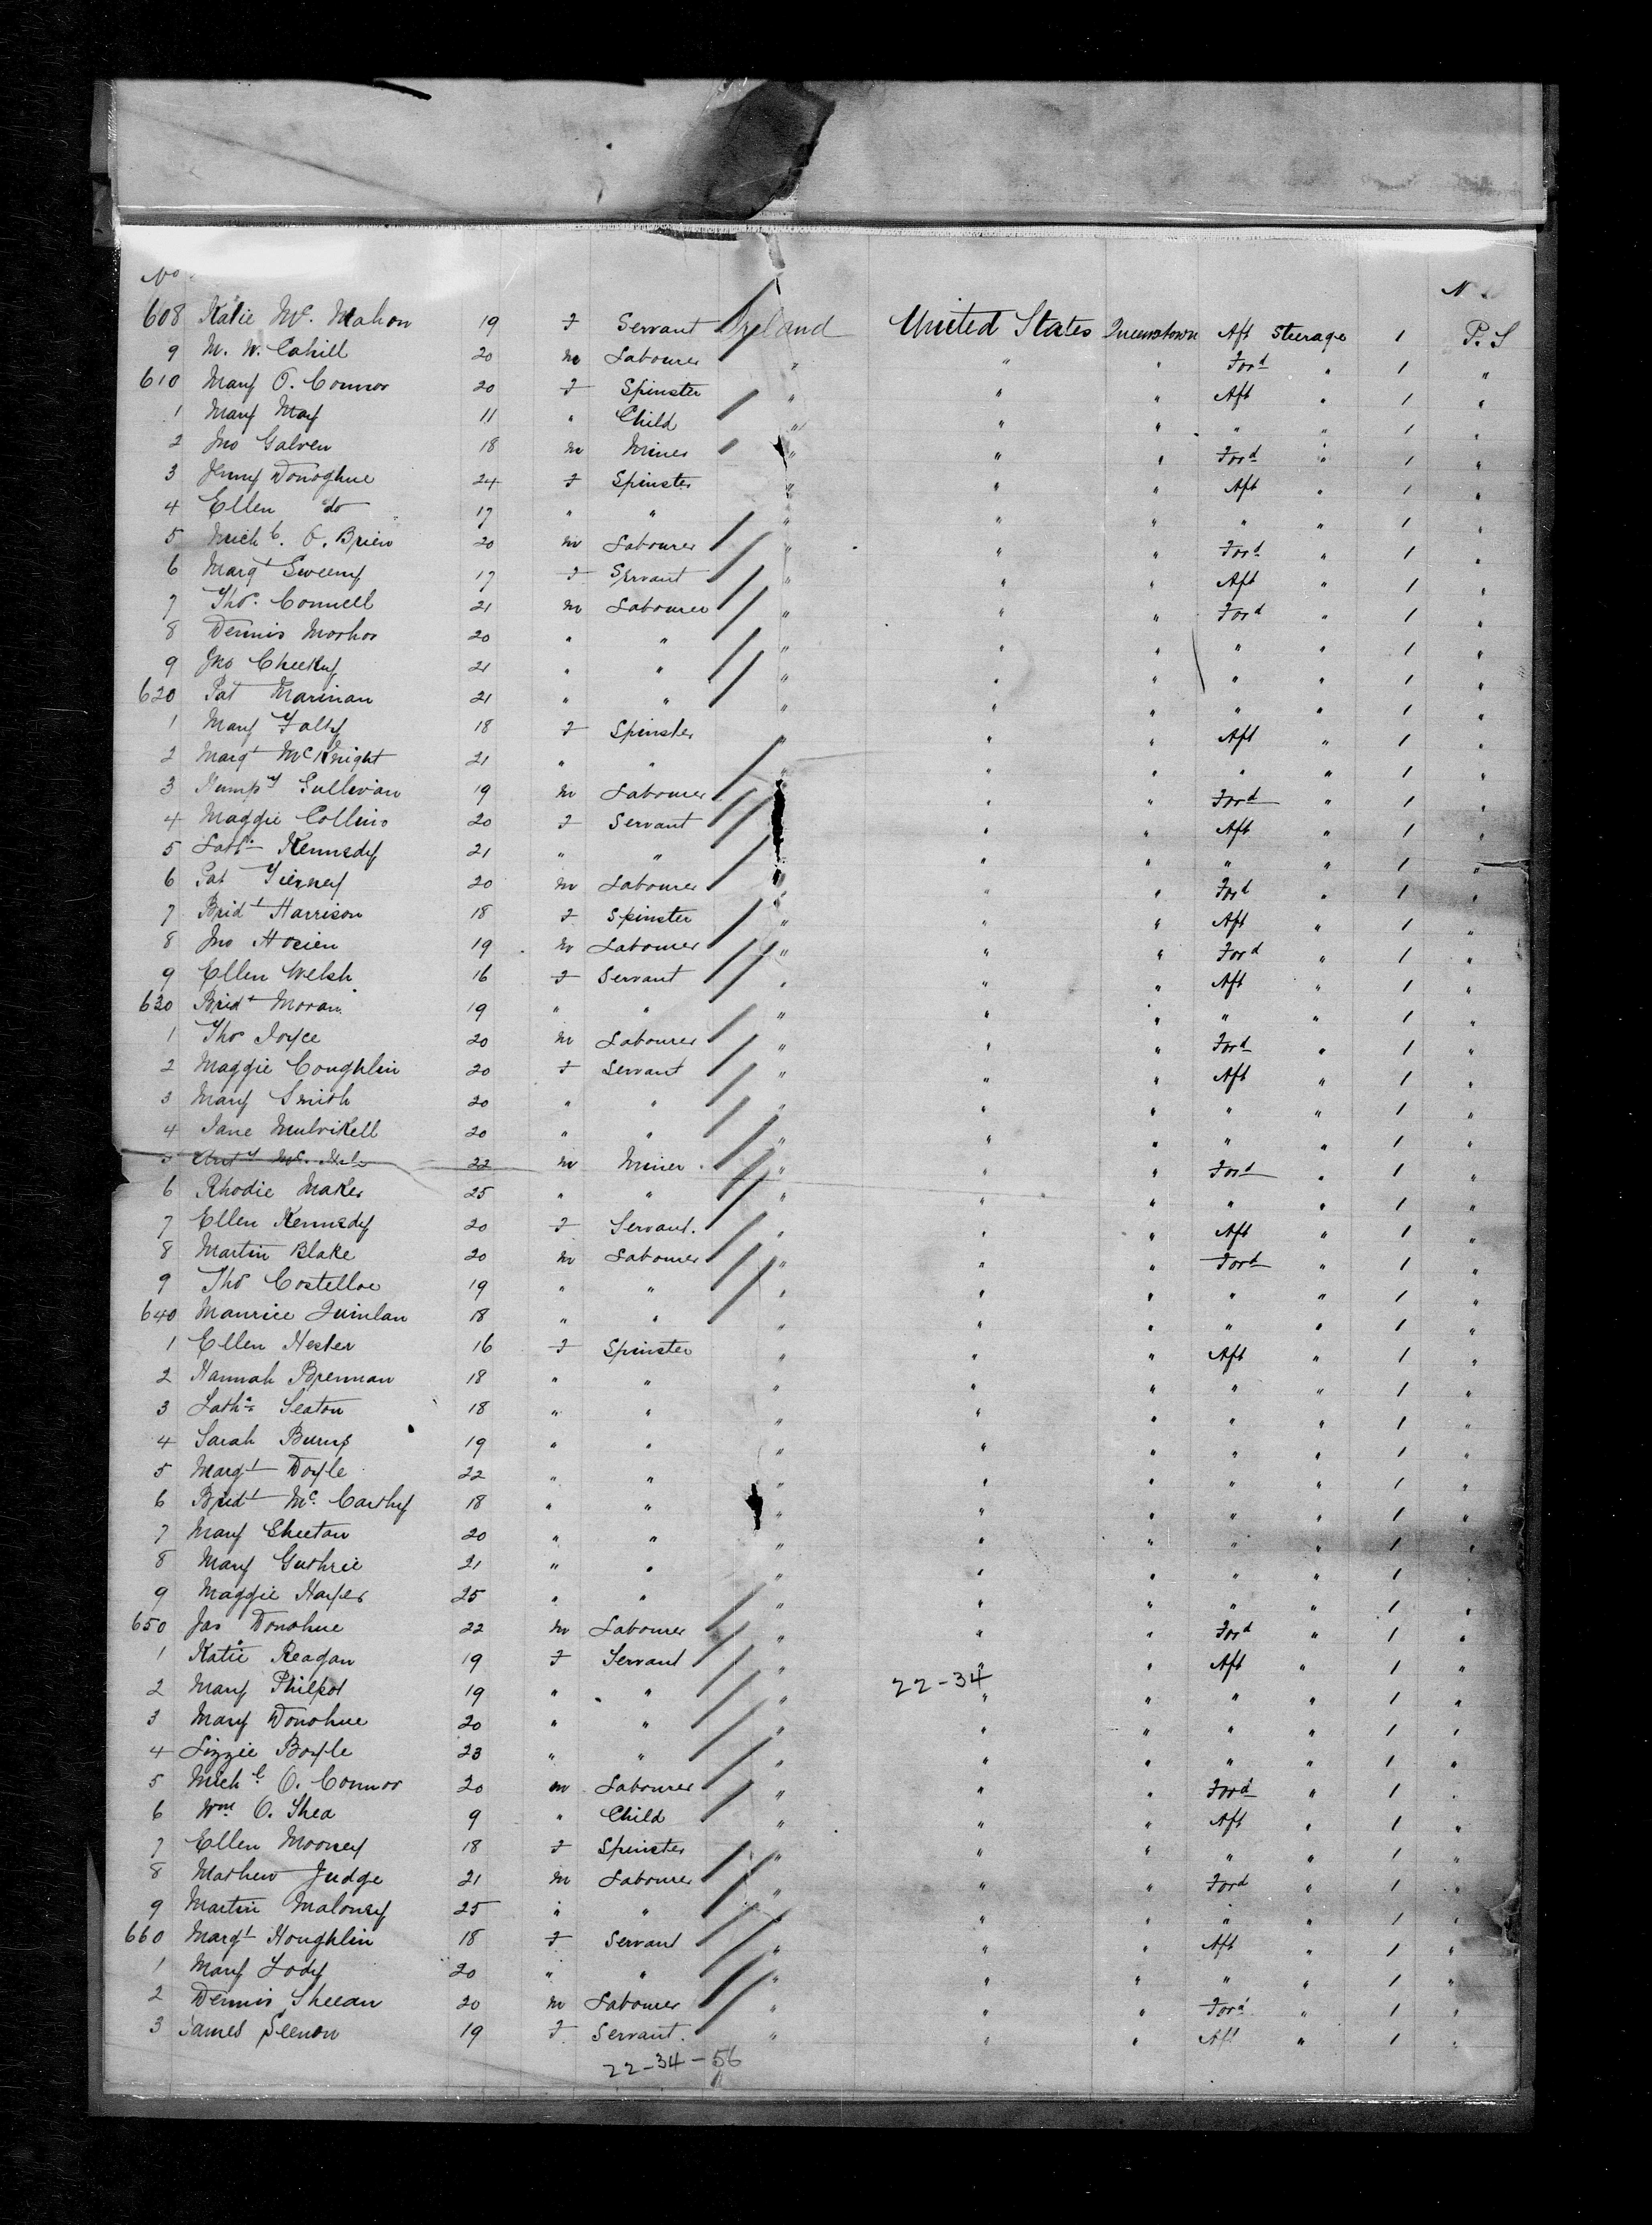 No
608 Katie Mc. Mahon 19 F Servant Ireland United States Queenstown Aft Steerage 1 P.S
9 M. W. Cahill 20 M Labourer " " " Ford " 1 "
610 Mary O. Connor 20 F Spinster " " " Aft " 1 "
1 Mary May 11 " Child " " " " " 1 "
2 Jno Galven 18 M Miner " " " Ford " 1 "
3 Jenny Donoghue 24 F Spinster " " " Aft " 1 "
4 Ellen do 17 " " " " " " " 1 "
5 Michl. O. Brien 20 M Labourer " " " Ford " 1 "
6 Margt Sweeny 17 F Servant " " " Aft " 1 "
7 Thos. Connell 21 M Labourer " " " Ford " 1 "
8 Dennis 20 " " " " " " " 1 "
9 Jno 21 " " " " " " " 1 "
620 Pat Marinan 21 " " " " " " " 1 "
1 Mary 18 F Spinster " " " Aft " 1 "
2 Margt McKnight 21 " " " " " " " 1 "
3 Humpy Sullivan 19 M Labourer " " Ford " 1 "
4 Maggie Collins 20 F Servant " " Aft " 1 "
5 Kennedy 21 " " " " " " 1 "
6 Pat Tierney 20 M Labourer " " " Ford " 1 "
7 Bridt Harrison 18 F Spinster " " " Aft " 1 "
8 Jno 19 M Labourer " " " Ford " 1 "
9 Ellen Welsh 16 F Servant " " " Aft " 1 "
630 Bridt Moran 19 " " " " " " " 1 "
1 Thos Joyce 20 M Labourer " " " Ford " 1 "
2 Maggie Coughlin 20 F Servant " " " Aft " 1 "
3 Mary Smith 20 " " " " " " " 1 "
4 Jane Mulvikell 20 " " " " " " " 1 "
5 Anty Mc. 22 M Miner " " " Ford " 1 "
6 Rhodie Maker 25 " " " " " " " 1 "
7 Ellen Kennedy 20 F Servant. " " " Aft " 1 "
8 Martin Blake 20 M Labourer " " " Ford " 1 "
9 Thos Costelloe 19 " " " " " " " 1 "
640 Maurice Quinlan 18 " " " " " " " 1 "
1 Ellen Hester 16 F Spinster " " " Aft " 1 "
2 Hannah Brennan 18 " " " " " " " 1 "
3 Seaton 18 " " " " " " " 1 "
4 Sarah Burns 19 " " " " " " " 1 "
5 Margt Doyle 22 " " " " " " " 1 "
6 Bridt Mc. Carthy 18 " " " " " " " 1 "
7 Mary Sheetan 20 " " " " " " " 1 "
8 Mary Guthrie 21 " " " " " " " 1 "
9 Maggie Hayes 25 " " " " " " " 1 "
650 Jas Donohue 22 M Labourer " " " Ford " 1 "
1 Katie Reagan 19 F Servant " " " Aft " 1 "
22-34
2 Mary Philpot 19 " " " " " " " 1 "
3 Mary Donohue 20 " " " " " " " 1 "
4 Lizzie Boyle 23 " " " " " " " 1 "
5 Michl. O. Connor 20 M Labourer " " " Ford " 1 "
6 Wm O. Shea 9 " Child " " " Aft " 1 "
7 Ellen Mooney 18 F Spinster " " " " " 1 "
8 Mathew Judge 21 M Labourer " " " Ford " 1 "
9 Martin Maloney 25 " " " " " " " 1 "
660 Margt Houghlin 18 F Servant " " " Aft " 1 "
1 Mary Lody 20 " " " " " " " 1 "
2 Dennis Sheean 20 M Labourer " " " Ford " 1 "
3 James 19 F Servant. " " " Aft " 1 "
22-34-56